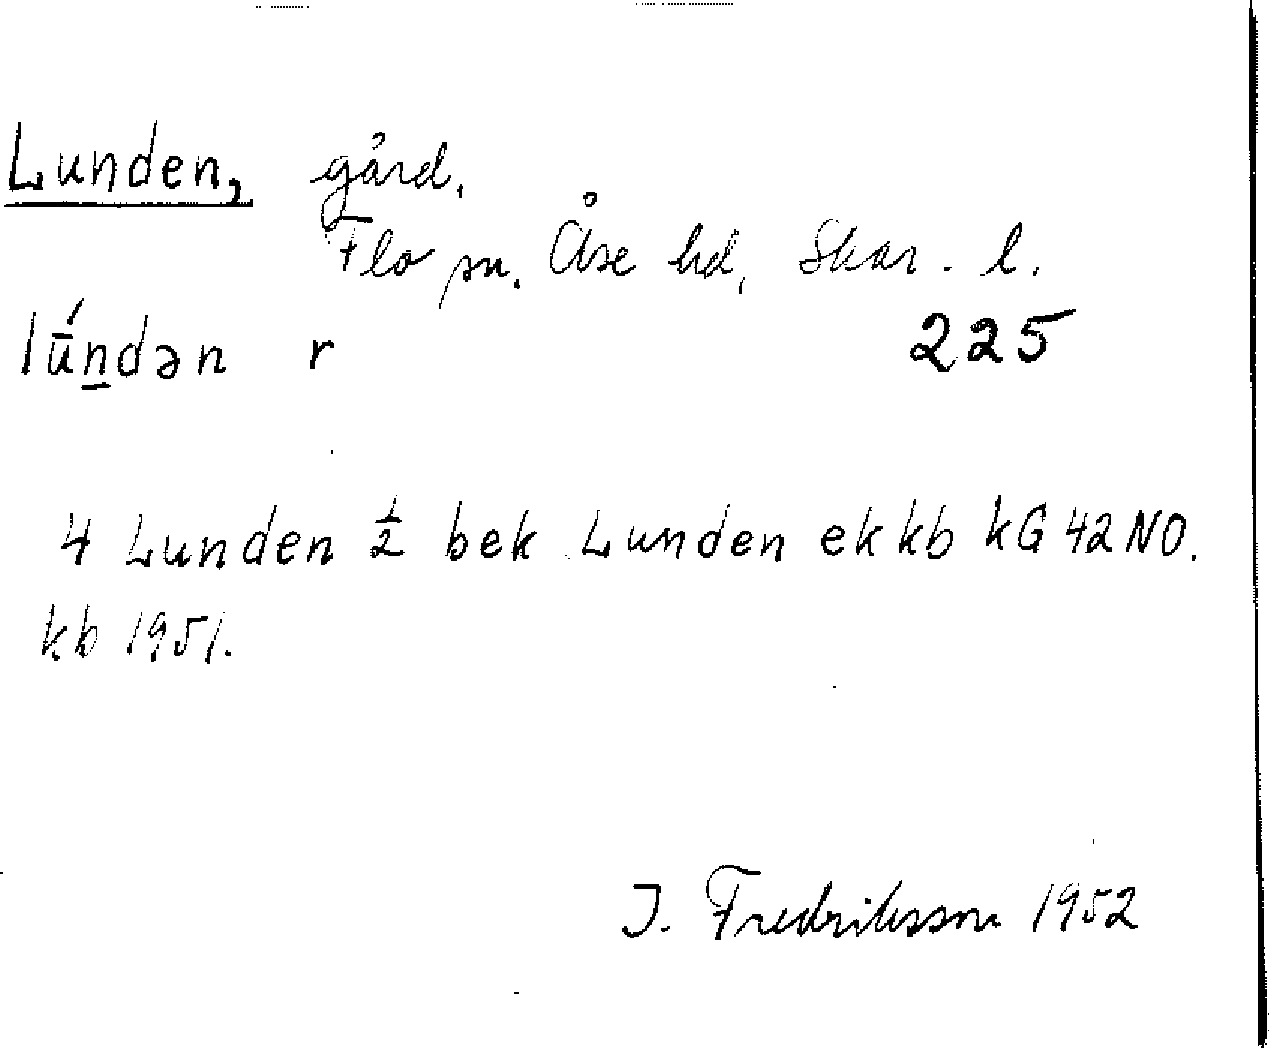 Lunden, gård.
Flo sn. Åse hd, Skar. l.
lū́n̲dən r 225
4 Lunden ½ bek Lunden ekkb kG 42 NO.
kb 1951.
J. Fredriksson 1952